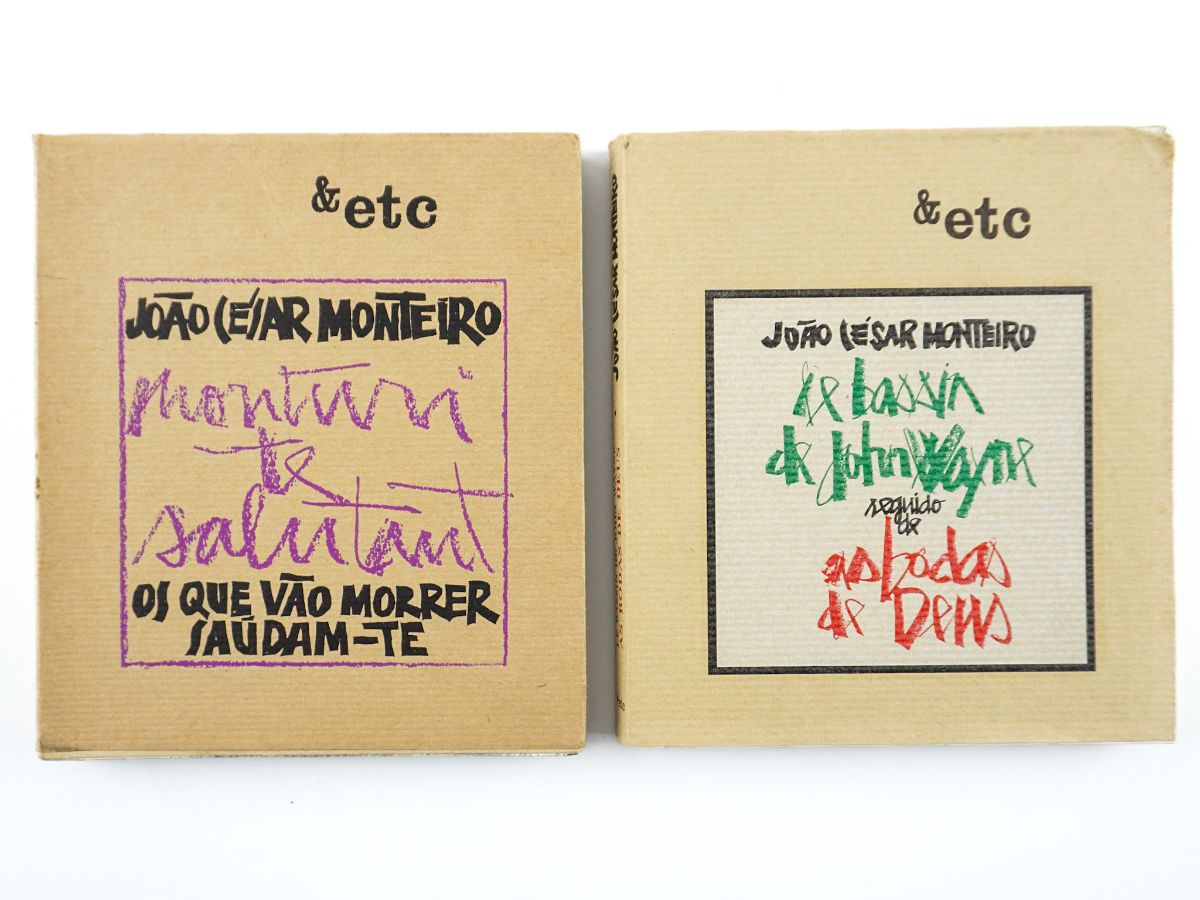 & etc
JOÃO CÉSAR MONTEIRO
morituri
te
salutant
OS QUE VÃO MORRER
SAÚDAM-TE
JOÃO CÉSAR MONTEIRO
AS BODAS DE DEUS
& etc
JOÃO CÉSAR MONTEIRO
le bassin
de John Wayne
seguido
de
as bodas
de Deus